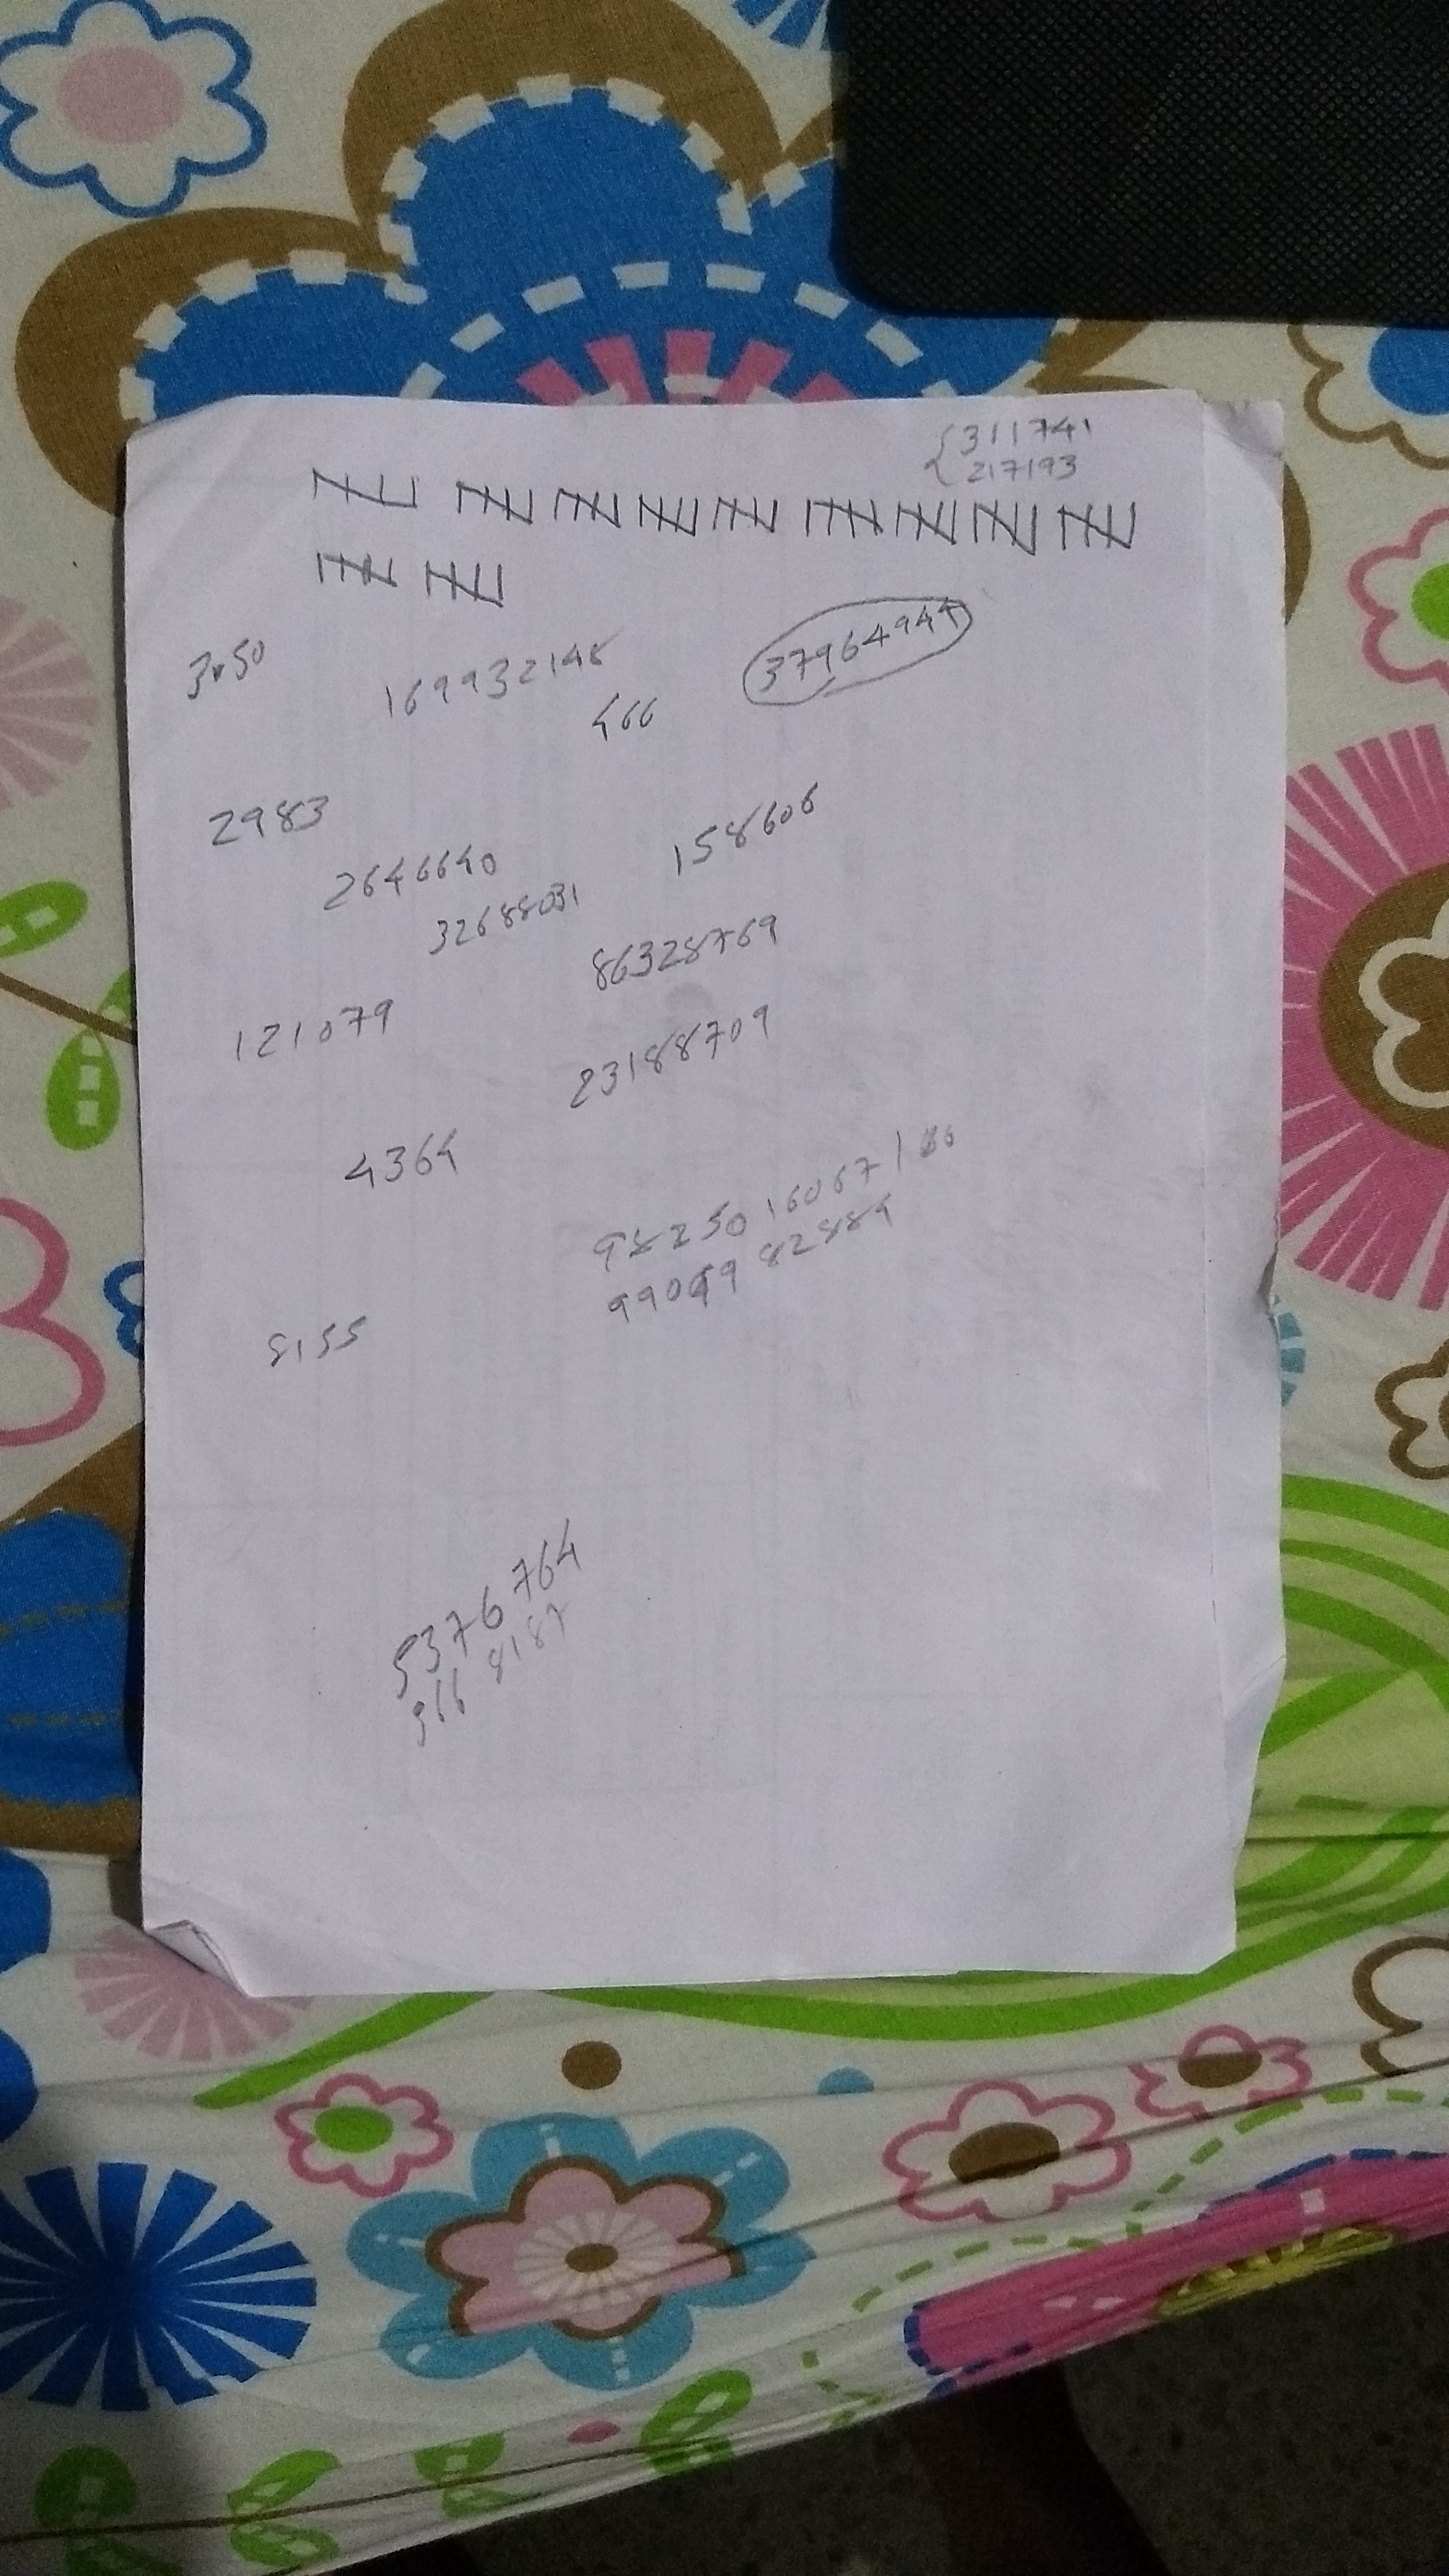 311741
217193
3x50
169932148
466
37964944
2983
2646640
158606
32688031
86328769
121079
23188709
4364
9825016067
82884
8155
5376764
966 8187